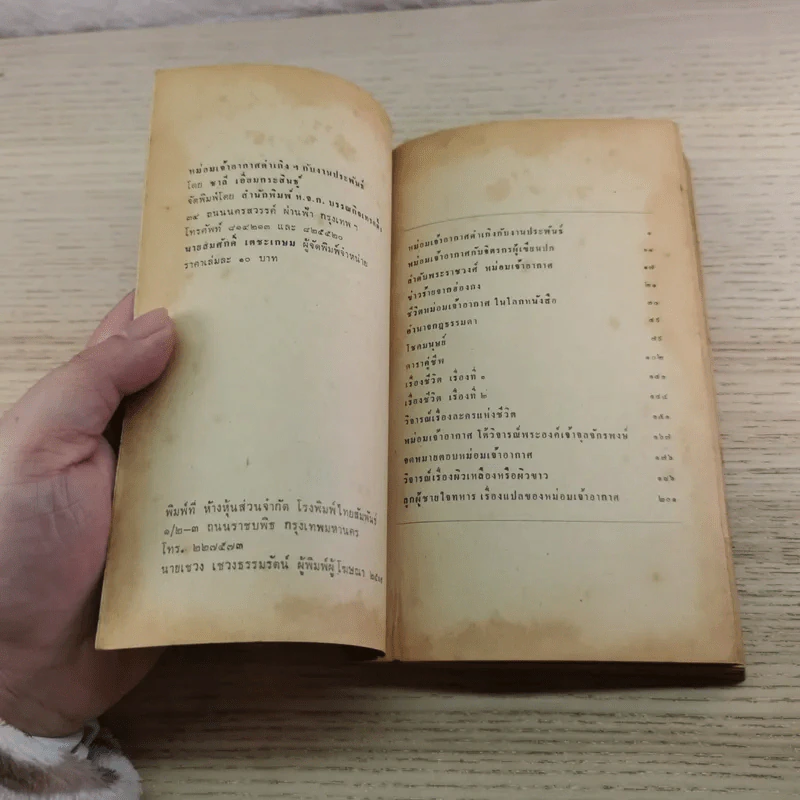 หม่อมเจ้าอากาศดำเกิง ฯ กับงานประพันธ์
โดย ชาลี เอี่ยมกระสินธุ์
จัดพิมพ์โดย สำนักพิมพ์ ห.จ.ก. บรรณกิจเทรดดิ้ง
๓๔ ถนนนครสวรรค์ ผ่านฟ้า กรุงเทพ ฯ
โทรศัพท์ ๘๑๔๒๑๓ และ ๘๒๕๕๒๐
นายสมศักดิ์ เตชะเกษม ผู้จัดพิมพ์จำหน่าย
ราคาเล่มละ ๑๐ บาท
พิมพ์ที่ ห้างหุ้นส่วนจำกัด โรงพิมพ์ไทยสัมพันธ์
๑/๒-๓ ถนนราชบพิธ กรุงเทพมหานคร
โทร. ๒๒๗๕๗๓
นายเชวง เชวงธรรมรัตน์ ผู้พิมพ์ผู้โฆษณา
หม่อมเจ้าอากาศดำเกิงกับงานประพันธ์ ๑
หม่อมเจ้าอากาศกับจิตรกรผู้เขียนปก ๑๑
ลำดับพระราชวงศ์ หม่อมเจ้าอากาศ ๑๗
ข่าวร้ายจากฮ่องกง ๒๑
ชีวิตหม่อมเจ้าอากาศ ในโลกหนังสือ
อำนาจกฎธรรมดา
โชคมนุษย์
ดาราคู่ชีพ ๑๐๒
เรื่องชีวิต เรื่องที่ ๑
เรื่องชีวิต เรื่องที่ ๒
วิจารณ์เรื่องละครแห่งชีวิต
หม่อมเจ้าอากาศ โต้วิจารณ์พระองค์เจ้าจุลจักรพงษ์ ๑๖๗
จดหมายตอบหม่อมเจ้าอากาศ ๑๗๖
วิจารณ์เรื่องผิวเหลืองหรือผิวขาว
ลูกผู้ชายใจทหาร เรื่องแปลของหม่อมเจ้าอากาศ ๒๐๑